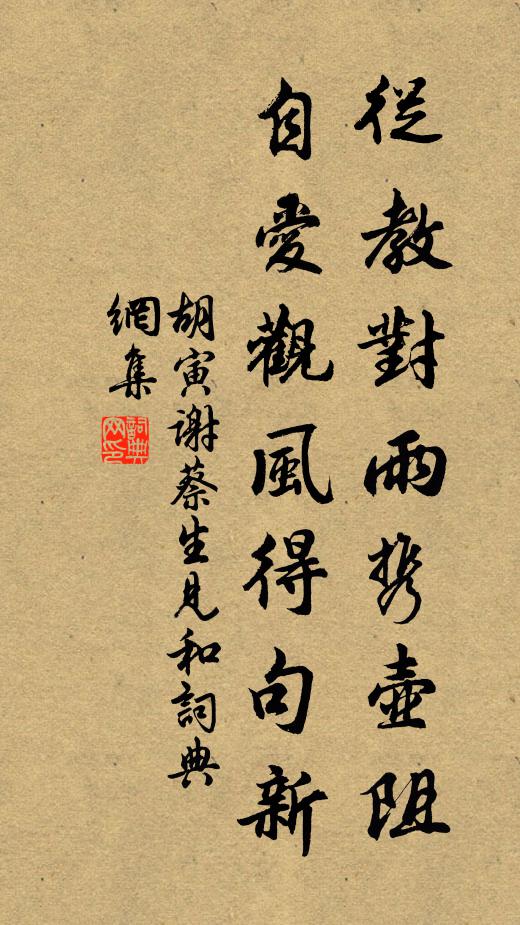 從教對雨携壺阻
自愛觀風得句新
胡寅謝蔡生見和詞典
網集
詞典
网印